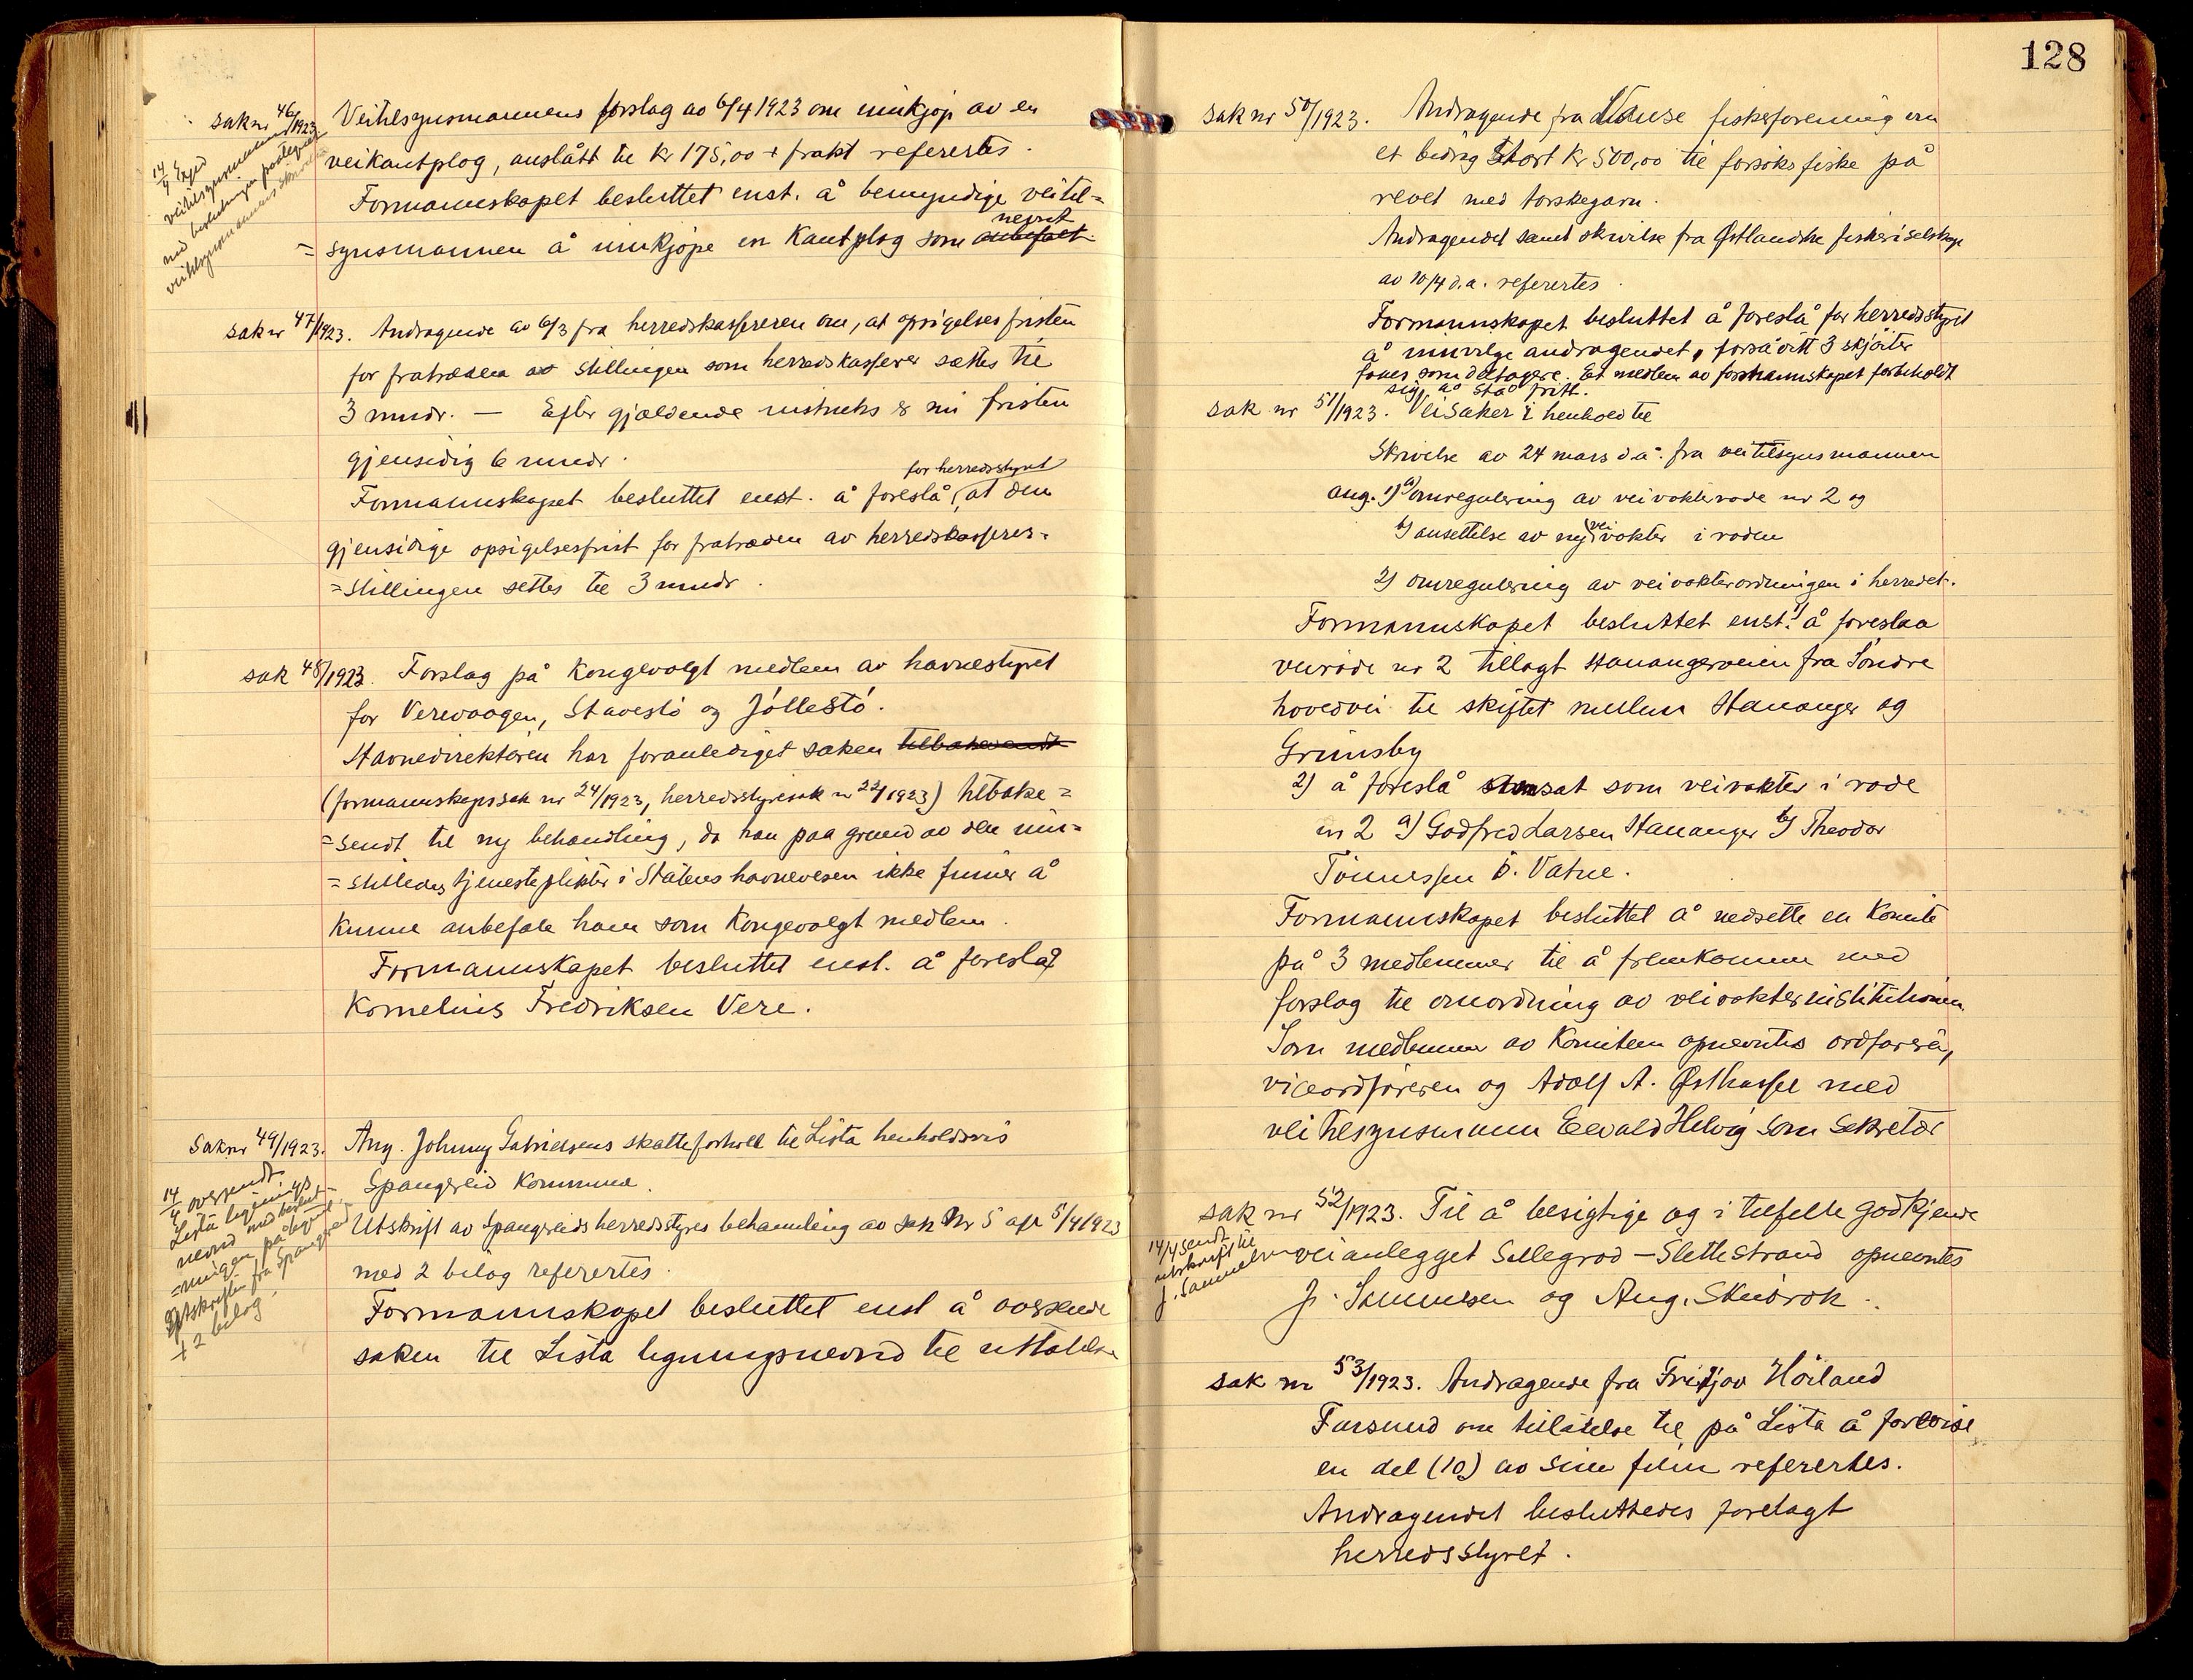 sak nr 46/1923. Veitilsynsmannens forslag av 6/4 1923 om innkjøp av en
veikantplog, anslått til kr 175,00 + frakt refereres.
Formannskapet besluttet enst. å bemyndige veitil=
=synsmannen å innkjøpe en kantplog som anbefalt nevnt
14/4 Exped
veitilsynsmannen
med beslutningen påtegnet
veitilsynsmannens skrivelse
sak nr 47/1923. Andragende av 6/3 fra herredskassereren om, at opsigelsesfristen
for fratræden av stillingen som herredskasserer sættes til
3 mndr. — Efter gjældende instruks er nu fristen
gjensidig 6 mndr.
Formannskapet besluttet enst. å foreslå for herredsstyret, at den
gjensidige opsigelsesfrist for fratræden av herredskasserer=
=stillingen settes til 3 mndr.
sak 48/1923. Forslag på kongevalgt medlem av havnestyret
for Verevaagen, Stavestö og Jöllestö.
Havnedirektören har foranlediget saken tilbakesendt
(formannskapssak nr 24/1923, herredsstyresak nr 22/1923) tilbake=
=sendt til ny behandling, da han paa grund av den inn=
=stilledes tjenesteplikter i Statens havnevesen ikke finner å
kunne anbefale ham som kongevalgt medlem.
Formannskapet besluttet enst. å foreslå
Kornelius Fredriksen Vere.
Sak nr 49/1923. Ang. Johnny Gabrielsens skatteforhold til Lista henholdsvis
Spangreid kommune.
Utskrift av Spangreids herredsstyres behandling av sak nr 5 av 5/4 1923
med 2 bilag referertes.
Formannskapet besluttet enst å oversende
saken til Lista ligningsnevnd til uttalelse
14/4 oversendt
Lista lignings
nevnd med beslut-
=ningen påtegnet
utskriften fra Spangreid
+ 2 bilag.
128
sak nr 50/1923. Andragende fra Vanse fiskerforening om
et bidrag stort kr 500,00 til forsøksfiske på
revet med torskegarn.
Andragendet samt skrivelse fra Østlandske fiskeriselskap
av 10/4 d.a. referertes.
Formannskapet besluttet å foreslå for herredsstyret
å innvilge andragendet, forsåvitt 3 skjöiter
fåes som deltagere. Et medlem av formannskapet forbeholdt
sig å stå fritt.
sak nr 51/1923. Veisaker i henhold til
Skrivelse av 24 mars d.å. fra veitilsynsmannen
ang. 1) a) omregulering av veivokterrode nr 2 og
b) ansettelse av ny veivokter i roden
2) omregulering av veivokterordningen i herredet.
Formannskapet besluttet enst. 1) å foreslaa
veirode nr 2 tillagt Hanangerveien fra Söndre
hovedvei til skiftet mellem Hananger og
Grimsby
2) å foreslå ansat som veivokter i rode
nr 2 a) Godfred Larsen Hananger b) Theodor
Tönnessen Ö. Vatne.
Formannskapet besluttet å nedsette en komite
på 3 medlemmer til å fremkomme med
forslag til omordning av veivokterinstitutionen.
Som medlemmer av komiteen opnevntes ordføreren,
viceordføreren og Adolf A. Østhassel med
veitilsynsmann Eevald Helvig som sekretær
sak nr 52/1923. Til å besigtige og i tilfelle godkjende
veianlegget Sellegrod – Slettestrand opnevntes
J. Samuelsen og Aug. Skeibrok.
14/4 sendt
utskrift til
J. Samuelsen
sak nr 53/1923. Andragende fra Fritjov Höiland
Farsund om tillatelse til på Lista å forevise
en del (10) av sine film referertes.
Andragendet besluttedes forelagt
herredsstyret.